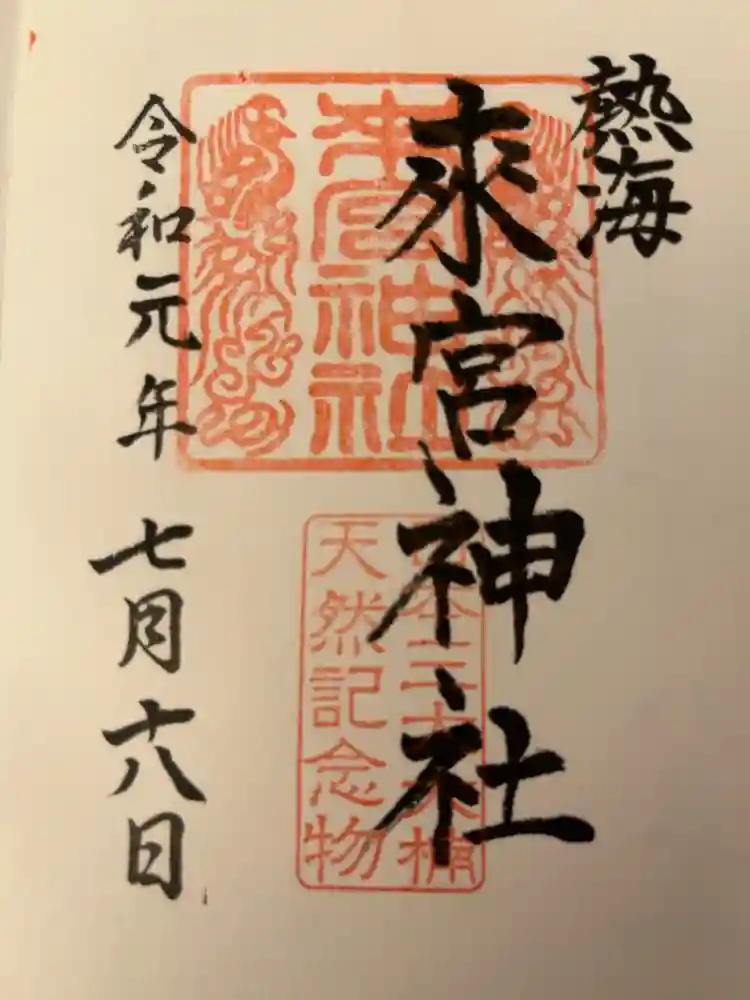 熱海
來宮神社
來宮神社
日本三大大楠
天然記念物
令和元年 七月十八日